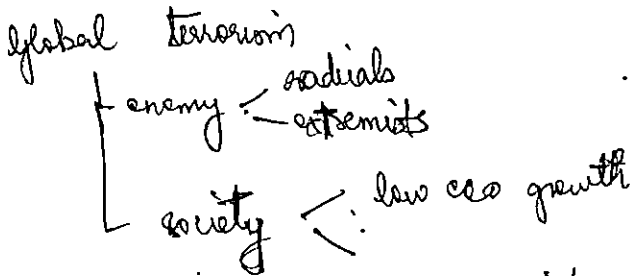 Global terrorism
enemy radicals
extremists
society low eco growth